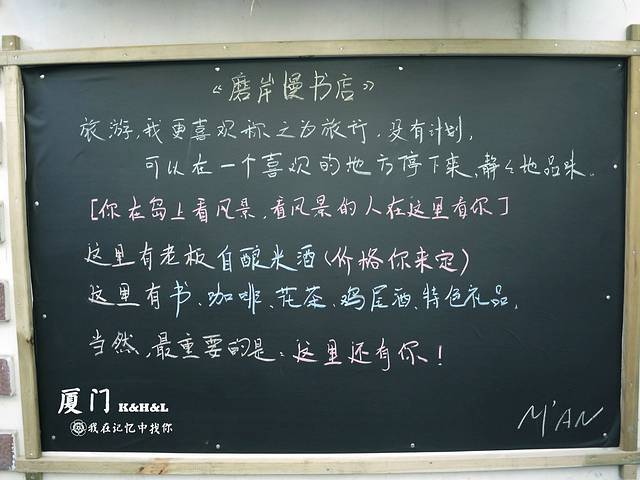 《磨岸慢书店》
旅游,我更喜欢称之为旅行,没有计划,
可以在一个喜欢的地方停下来,静々地品味。
[你在岛上看风景,看风景的人在这里看你]
这里有老板自酿米酒(价格你来定)
这里有书、咖啡、花茶、鸡尾酒、特色礼品,
当然,最重要的是:这里还有你!
M'AN
厦门 K&H&L
我在记忆中找你